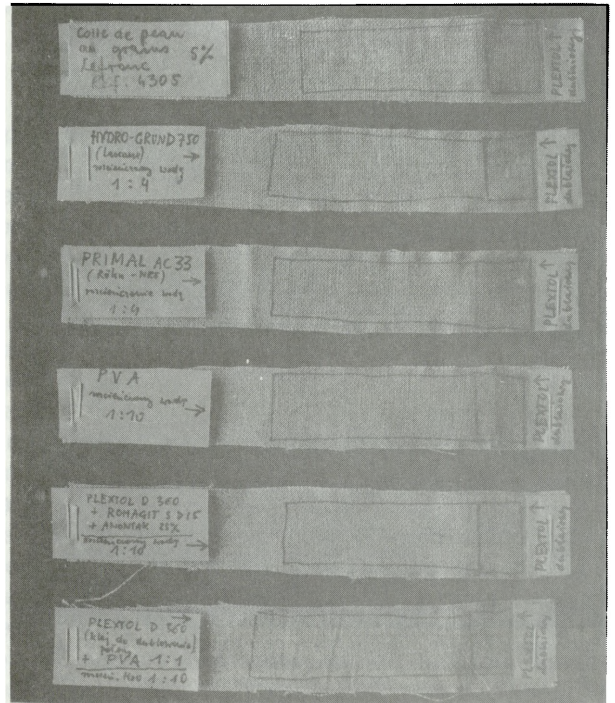 Colle de peau
en grains 5%
Lefranc
4305
PLEXTOL ↑
dublażowy
HYDRO-GRUND 750
(Lascaux) →
rozcieńczony wodą
1 : 4
PLEXTOL ↑
dublażowy
PRIMAL AC 33
(Röhm - →
rozcieńczenie wodą
1:4
PLEXTOL ↑
dublażowy
PVA
rozcieńczony wodą →
1:10
PLEXTOL ↑
dublażowy
PLEXTOL D 360
+ ROHAGIT S
+ AMONIAK 25%
rozcieńczony wodą →
1:10
PLEXTOL ↑
dublażowy
→
PLEXTOL D 360
(klej do dublowania)
+ PVA 1:1
rozcień. H₂O 1:10
PLEXTOL ↑
dublażowy